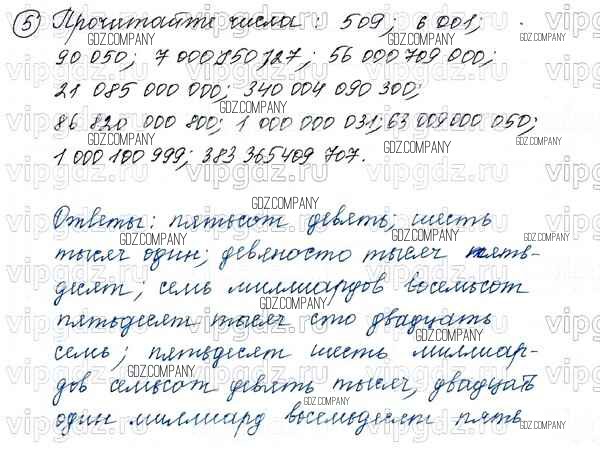 5 Прочитайте числа: 509; 6 001;
90 050; 7 000 850 127; 56 000 709 000;
21 085 000 000; 340 004 090 300;
86 820 000 800; 1 000 000 031; 63 009 000 050;
1 000 100 999; 383 365 409 707.
Ответы: пятьсот девять; шесть
тысяч один; девяносто тысяч пять-
десят; семь миллиардов восемьсот
пятьдесят тысяч сто двадцать
семь; пятьдесят шесть миллиар-
дов семьсот девять тысяч, двадцать
один миллиард восемьдесят пять
GDZ.COMPANY
GDZ.COMPANY
GDZ.COMPANY
GDZ.COMPANY
GDZ.COMPANY
GDZ.COMPANY
GDZ.COMPANY
GDZ.COMPANY
GDZ.COMPANY
GDZ.COMPANY
GDZ.COMPANY
GDZ.COMPANY
GDZ.COMPANY
GDZ.COMPANY
vipgdz.ru